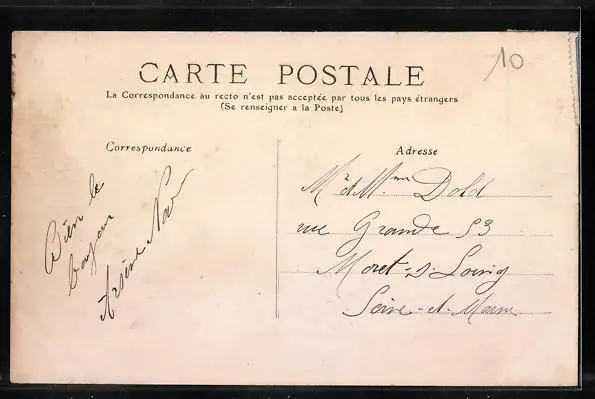 10
CARTE POSTALE
La Correspondance au recto n'est pas acceptée par tous les pays étrangers
(Se renseigner a la Poste)
Correspondance
Bien le
bonjour
Arsène
Adresse
Mr et Mme Dold
rue Grande 53
Moret-s-Loing
Seine-et-Marne